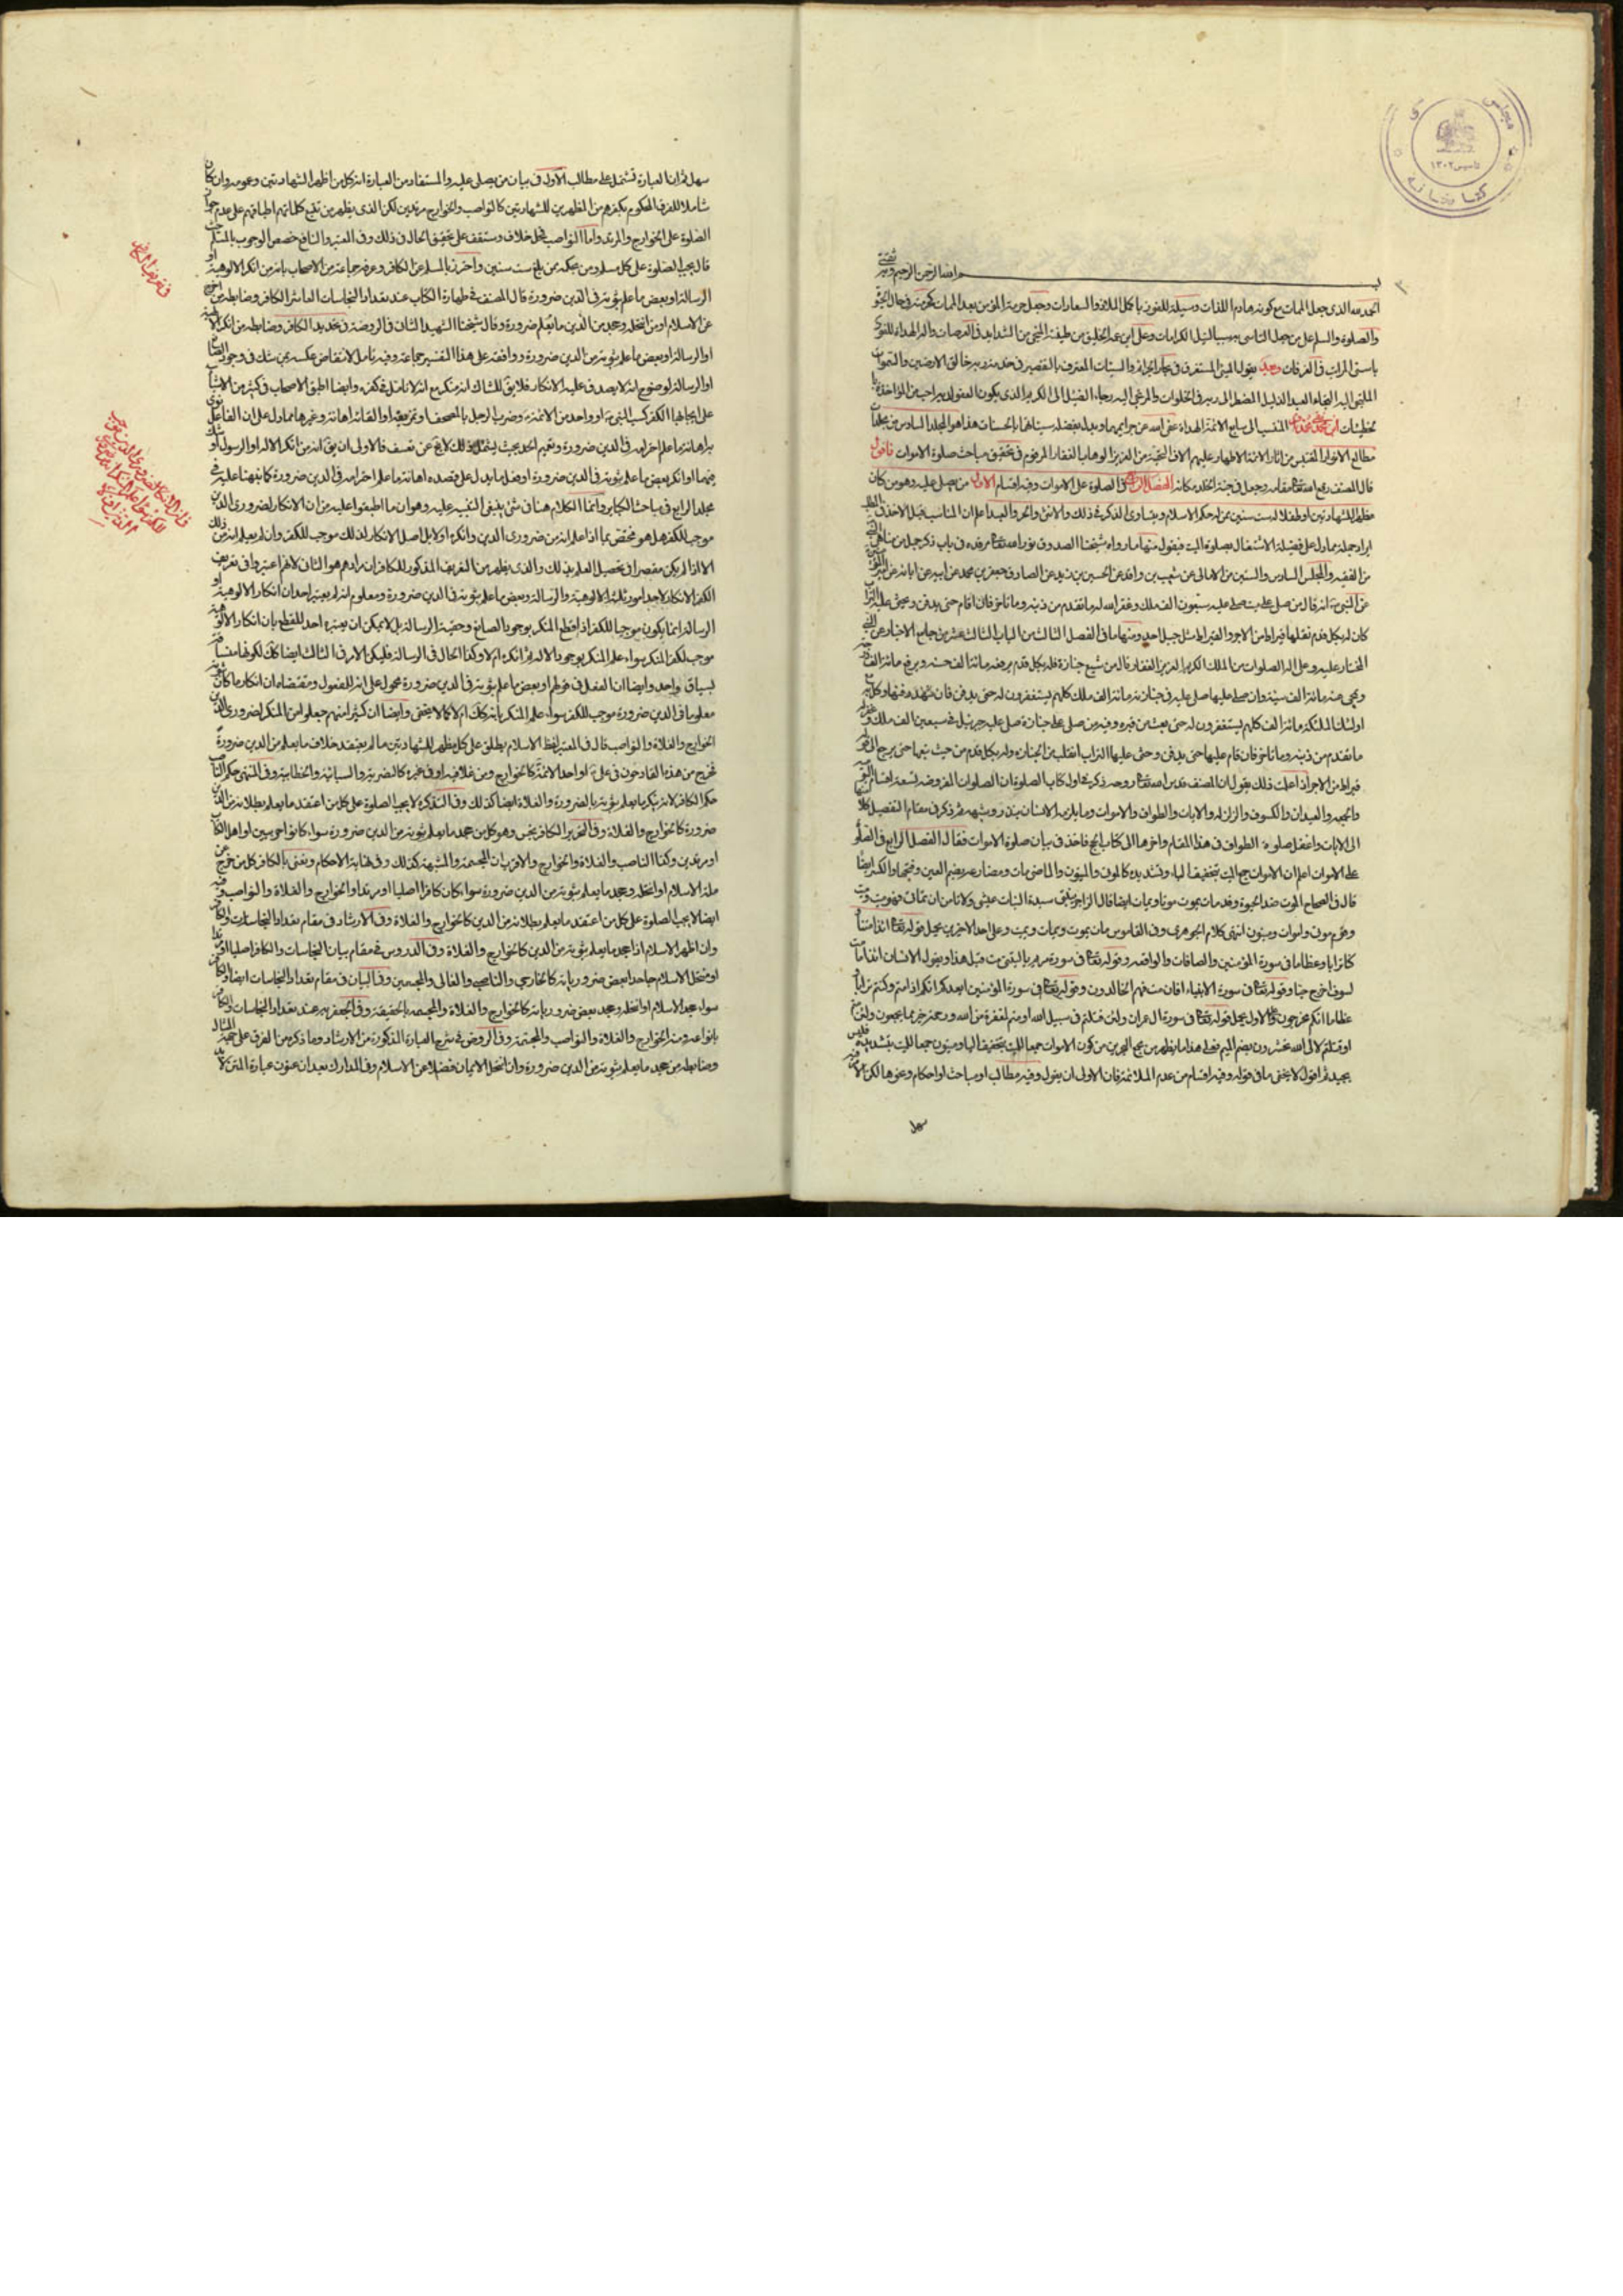 بسم الله الرحمن الرحيم وبه ثقتي
الحمد لله الذي جعل الممات مع كونه هادم اللذات وسيلة للفوز باكمل الملاذ والسعادات وجعل حرمة المؤمن بعد الممات كحرمته في حال الحيوة
والصلوة والسلم على من جعل التاسي به سببا لنيل الكرامات وعلى ابن عمه من الشدايد في العرصات واله الهداة للفوز
في الغرفات وبعد يقول المستغرق في بحار الجرائم والسيئات المعترف بالتقصير في خدمة ربه خالق الارضين والسموات
الملتجي اليه التجاء العبد الذليل المضطر الى ربه في الخلوات والمرتجي اليه رجاء الضئيل الى الكريم الذي يكون العفو لديه احب من المؤاخذة
المنتسب الى سابع الائمة الهداة عفى الله عن جرايمهما وبدل بفضله سيئاتهما بالحسنات هذا هو المجلد السادس من مجلدات
مطالع الانوار المقتبس من اثار الائمة الاطهار عليهم الاف التحية من العزيز الوهاب الغفار المرقوم في تحقيق مباحث صلوة الاموات فاقول
قال المصنف رفع الله تعالى مقامه وجعل في جنة الخلد مكانه الفصل الرابع في الصلوة على الاموات وفيه اقسام الاول من يصلى عليه وهو من كان
مظهرا للشهادتين او طفلا له ست سنين ممن له حكم الاسلام ويتساوى الذكر في ذلك والانثى والحر والعبد اعلم ان المناسب قبل الاخذ في المطلب
ايراد جملة مما دل على فضيلة الاشتغال بصلوة الميت فنقول منها ما رواه شيخنا الصدوق نور الله تعالى مرقده في باب ذكر جمل من مناهي النبي
من الفقيه والمجلس السادس والستين من الامالي عن شعيب بن واقد عن الحسين بن زيد عن الصادق جعفر بن محمد عن ابيه عن ابائه عن امير المؤمنين
عن النبي انه قال من صلى على ميت صلى عليه سبعون الف ملك وغفر الله له ما تقدم من ذنبه وما تاخر فان اقام حتى يدفن ويحثى عليه التراب
كان له بكل قدم نقلها قيراط من الاجر والقيراط مثل جبل احد ومنها ما في الفصل الثالث من الباب الثالث عشر من جامع الاخبار عن النبي
المختار عليه وعلى اله الصلوات من الملك الكريم العزيز الغفار قال من شيع جنازة فله بكل قدم يرفعه مائة الف حسنة ويرفع مائة الف درجة
ويمحى عنه مائة الف سيئة وان صلى عليها صلى عليه في جنازته مائة الف ملك كلهم يستغفرون له حتى يدفن فان شهد دفنها وكل به
اولئك الملئكة مائة الف كلهم يستغفرون له حتى يبعث من قبره وفيه من صلى على جنازة صلى عليه جبرئيل في سبعين الف ملك وغفر له
ما تقدم من ذنبه وما تاخر فان قام عليها حتى يدفن وحثى عليها التراب انقلب من الجنازة وله بكل قدم من حيث تبعها حتى يرجع الى
قيراط من الاجر اذا علمت ذلك نقول ان المصنف قدس الله تعالى روحه ذكر في اول كتاب الصلوة ان الصلوات المفروضة تسعة اقسام
والجمعة والعيدان والكسوف والزلزلة والايات والطواف والاموات وما يلزمه الانسان بنذر وشبهه ثم ذكر في مقام التفصيل كلا
الى الايات واغفل صلوة الطواف في هذا المقام واخرها الى كتاب الحج فاخذ في بيان صلوة الاموات فقال الفصل الرابع في الصلوة
على الاموات اعلم ان الاموات جمع الميت بتخفيف الياء وتشديده
قال في الصحاح الموت ضد الحيوة وقد مات يموت ويمات ايضا قال الراجز بنيتي سيدة البنات عيشي ولا نامن ان تماتي فهو ميت وميت
وقوم موتى واموات وميتون انتهى كلام الجوهري وفي القاموس مات يموت ويمات ويميت وعلى احد الاخيرين يحمل قوله تعالى ائذا متنا
وكنا ترابا وعظاما في سورة المؤمنين والصافات والواقعة وقوله تعالى في سورة مريم يا ليتني مت قبل هذا ويقول الانسان ائذا ما مت
لسوف اخرج حيا وقوله تعالى في سورة الانبياء افان مت فهم الخالدون وقوله تعالى في سورة المؤمنين ايعدكم انكم اذا متم وكنتم ترابا
وعظاما انكم مخرجون وعلى الاول يحمل قوله تعالى في سورة ال عمران ولئن قتلتم في سبيل الله او متم لمغفرة من الله ورحمة خير مما يجمعون ولئن متم
او قتلتم لالى الله تحشرون بضم الميم فعلى هذا ما يظهر من مجمع البحرين من كون الاموات جمعا للميت بتخفيف الياء وميتون جمعا للميت بتشديده فليس
بجيد ثم اقول لا يخفى ما في قوله وفيه اقسام من عدم الملائمة فان الاولى ان يقول وفيه مطالب او مباحث او احكام ونحوها لكن الامر فيه
سهل
سهل ثم ان العبارة تشتمل على مطالب الاول في بيان من يصلى عليه والمستفاد من العبارة انه كل من اظهر الشهادتين وعمومه وان كان
شاملا للفرق المحكوم بكفرهم من المظهرين للشهادتين كالنواصب والخوارج لكن الذي يظهر من تتبع كلماتهم اطباقهم على عدم جواز
الصلوة على الخوارج والمرتد واما النواصب فمحل خلاف وستقف على تحقيق الحال في ذلك وفي المعتبر والنافع خصص الوجوب بالمسلم حيث
قال يجب الصلوة على كل مسلم ومن بحكمه ممن بلغ ست سنين واحترز بالمسلم عن الكافر وعرفه جماعة من الاصحاب بانه من انكر الالوهية او
الرسالة او بعض ما علم ثبوته في الدين ضرورة قال المصنف في طهارة الكتاب عند تعداد النجاسات العاشر الكافر وضابطه من خرج
عن الاسلام او من انتحله وجحد من الدين ما يعلم ضرورة وقال شيخنا الشهيد الثاني في الروضة في تحديد الكافر وضابطه من انكر الالهية
او الرسالة او بعض ما علم ثبوته من الدين ضرورة ووافقه على هذا التفسير جماعة وفيه تامل لانتقاض عكسه بمن شك في وجود الصانع
او الرسالة لوضوح انه لا يصدق عليه الانكار فلا يق للشاك انه منكر مع انه لا تامل في كفره وايضا اطبق الاصحاب في كثير من الاشياء
على ايجابها الكفر كسب النبي او واحد من الائمة وضرب الرجل بالمصحف او تمزيقه او القائه اهانة وغيرها مما دل على ان الفاعل نوى
بها اهانة ما علم احترامه في الدين ضرورة وتعميم الحد بحيث يشتمل ذلك لا يخ عن تعسف فالاولى ان يق انه من انكر الاله او الرسول او شك
فيهما او انكر بعض ما علم ثبوته في الدين ضرورة او فعل ما يدل على قصده اهانة ما علم احترامه في الدين ضرورة كما نبهنا عليه في
مجلد الرابع في مباحث الكبائر وانما الكلام هنا في شيء ينبغي التنبيه عليه وهو ان ما اطبقوا عليه من ان الانكار لضروري الدين
موجب للكفر هل هو مختص بما اذا علم انه من ضروري الدين وانكره او لا بل اصل الانكار لذلك موجب للكفر وان لم يعلم انه من ذلك
الا اذا لم يكن مقصرا في تحصيل العلم بذلك والذي يظهر من التعريف المذكور للكافر ان مرادهم هو الثاني لانهم اعتبروا في تعريف
الكفر الانكار لاحد امور ثلثة الالوهية والرسالة وبعض ما علم ثبوته في الدين ضرورة ومعلوم انه لم يعتبر احد ان انكار الالوهية او
الرسالة انما يكون موجبا للكفر اذا قطع المنكر بوجود الصانع وحقية الرسالة بل لا يمكن ان يعتبره احد للقطع بان انكار الالوهية
موجب لكفر المنكر سواء علم المنكر بوجود الاله ثم انكره ام لا وكذا الحال في الرسالة فليكن الامر في الثالث ايضا كك لكونها مساقة
بسياق واحد وايضا ان الفعل في قولهم او بعض ما علم ثبوته في الدين ضرورة محمول على انه للمفعول ومقتضاه ان انكار ما كان ثبوته
معلوما في الدين ضرورة موجب للكفر سواء علم المنكر بانه كك ام لا كما لا يخفى وايضا ان كثيرا منهم جعلوا من المنكر لضروري الدين
الخوارج والغلاة والنواصب قال في المعتبر لفظ الاسلام يطلق على كل مظهر للشهادتين ما لم يعتقد خلاف ما يعلم من الدين ضرورة
فخرج من هذا القادحون في علي او احد الائمة كالخوارج ومن غلا فيه او في غيره كالنصيرية والسبائية والخطابية وفي المنتهى حكم الناصب
حكم الكافر لانه ينكر ما يعلم ثبوته بالضرورة والغلاة ايضا كذلك وفي التذكرة لا يجب الصلوة على كل من اعتقد ما يعلم بطلانه من الدين
ضرورة كالخوارج والغلاة وفي التحرير الكافر نجس وهو كل من جحد ما يعلم ثبوته من الدين ضرورة سواء كانوا حربيين او اهل الكتاب
او مرتدين وكذا الناصب والغلاة والخوارج والاقرب ان المجسمة والمشبهة كذلك وفي نهاية الاحكام ونعني بالكافر كل من خرج عن
ملة الاسلام او انتحله وجحد ما يعلم ثبوته من الدين ضرورة سواء كان كافرا اصليا او مرتدا والخوارج والغلاة والنواصب وفيه
ايضا لا يجب الصلوة على كل من اعتقد ما يعلم بطلانه من الدين كالخوارج والغلاة وفي الارشاد في مقام تعداد النجاسات والكافر
وان اظهر الاسلام اذا جحد ما يعلم ثبوته من الدين كالخوارج والغلاة وفي الدروس في مقام بيان النجاسات والكافر اصليا او مرتدا
او منتحل الاسلام جاحدا بعض ضرورياته كالخارجي والناصبي والغالي والمجسمي وفي البيان في مقام تعداد النجاسات ايضا والكافر
سواء جحد الاسلام او انتحله وجحد بعض ضرورياته كالخوارج والغلاة والمجسمة بالحقيقة وفي الجعفرية عند تعداد النجاسات والكافر
بانواعه ومنه الخوارج والغلاة والنواصب والمجسمة وفي الروض في شرح العبارة المذكورة من الارشاد وما ذكر من الفرق على جهة المثال
وضابطه من جحد ما يعلم ثبوته من الدين ضرورة وان انتحل الايمان فضلا عن الاسلام وفي المدارك بعد ان عنون عبارة المتن
في تعريف الكافر